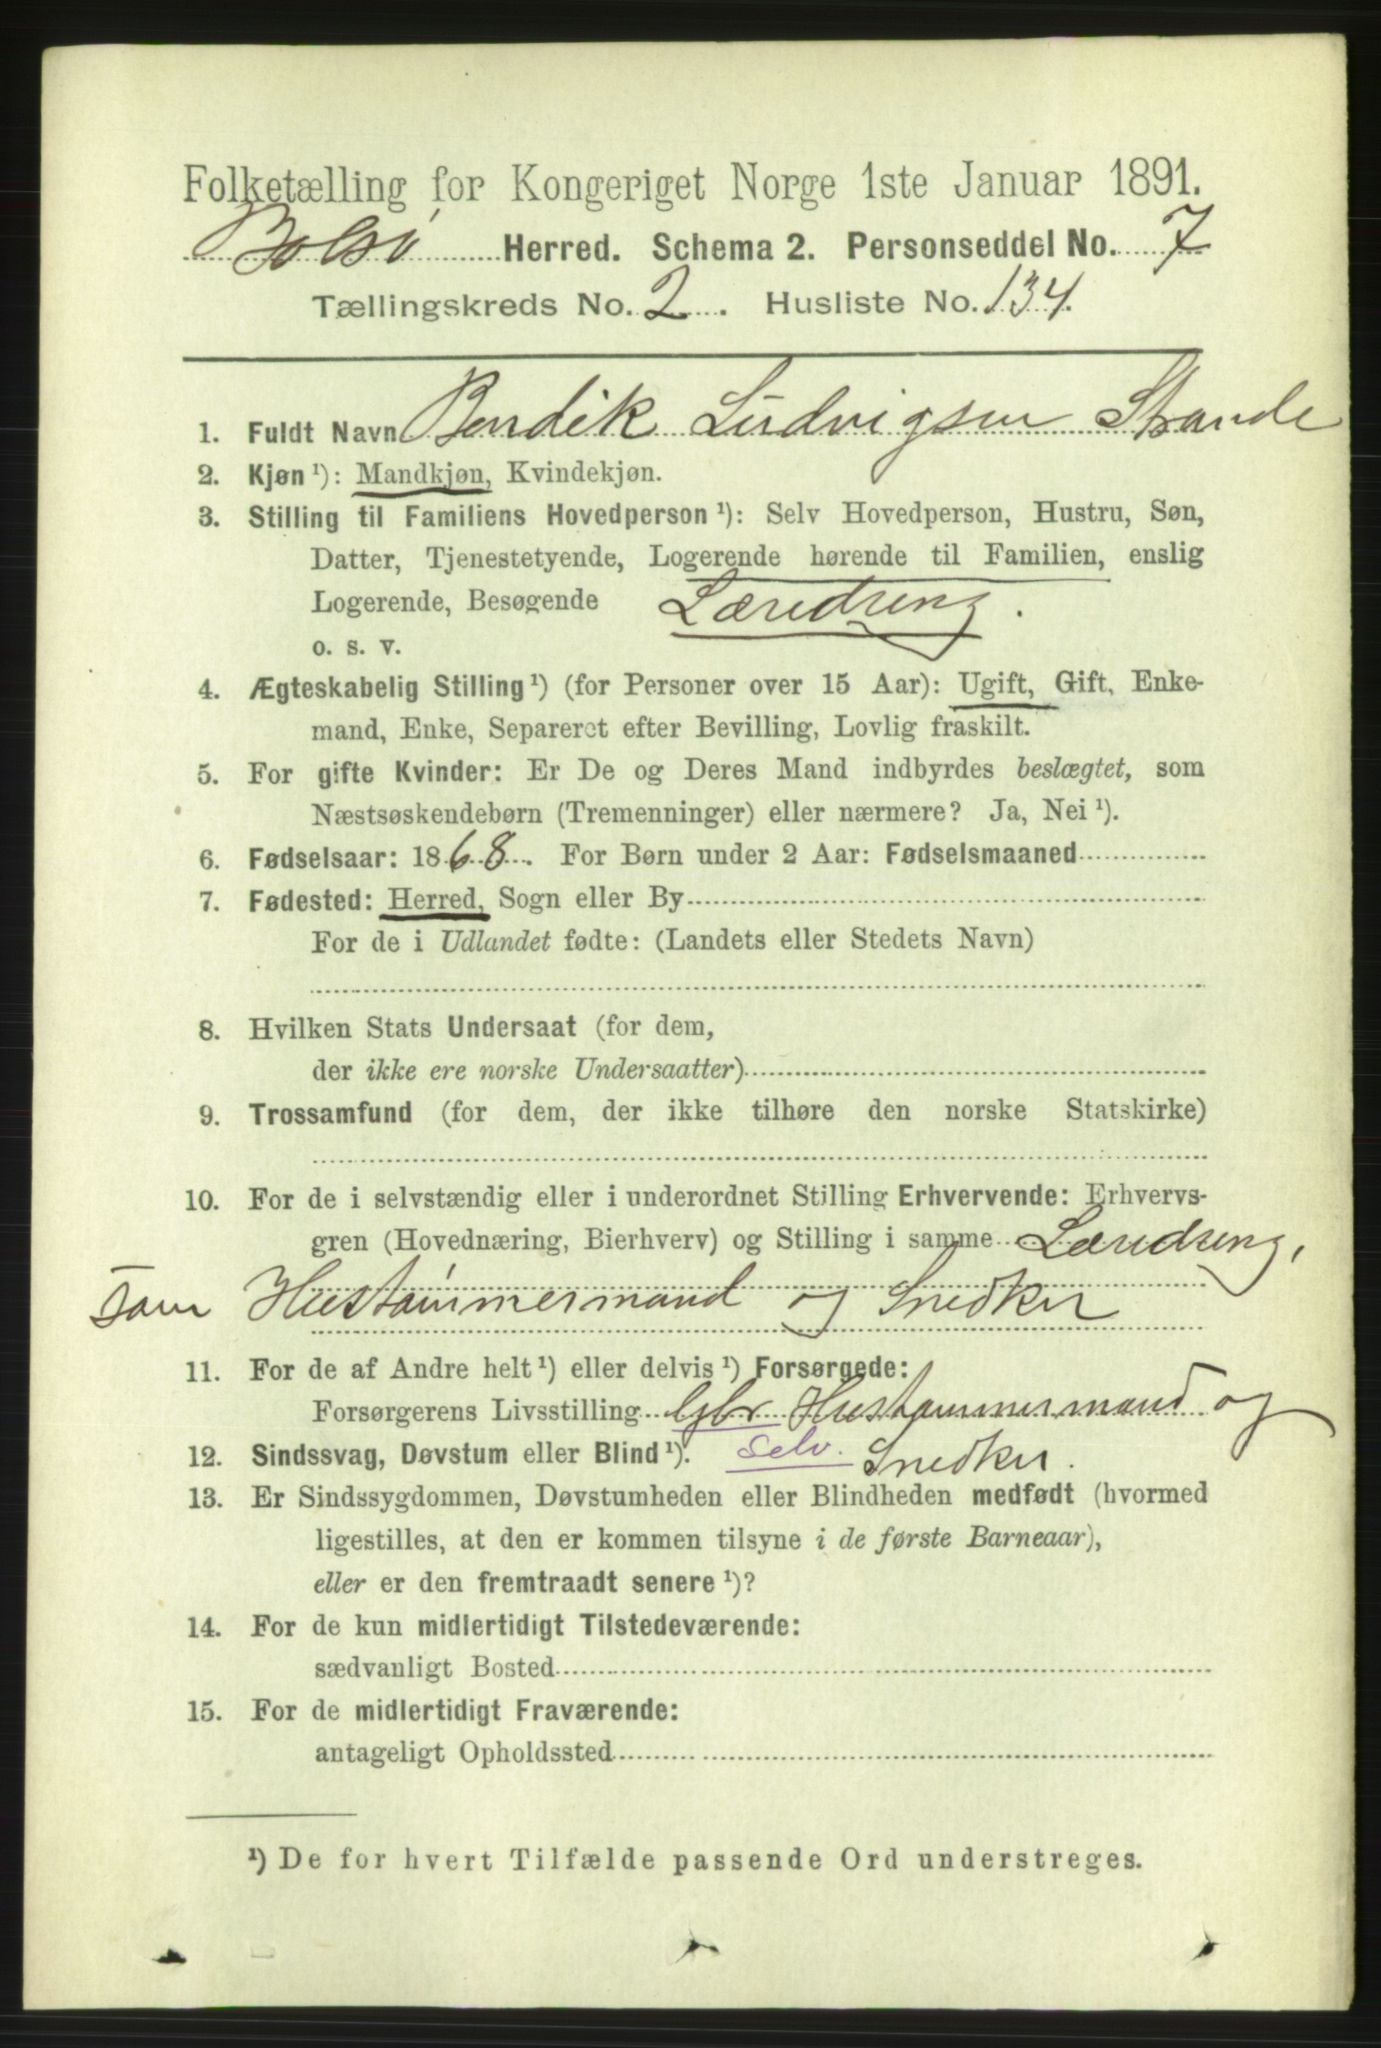 Folketælling for Kongeriget Norge 1ste Januar 1891.
Bolsø Herred. Schema 2. Personseddel No. 7
Tællingskreds No. 2. Husliste No. 134.
1. Fuldt Navn Bendik Ludvigsen Strande
2. Kjøn ¹): Mandkjøn, Kvindekjøn.
3. Stilling til Familiens Hovedperson ¹): Selv Hovedperson, Hustru, Søn,
Datter, Tjenestetyende, Logerende hørende til Familien, enslig
Logerende, Besøgende Læredreng.
o. s. v.
4. Ægteskabelig Stilling ¹) (for Personer over 15 Aar): Ugift, Gift, Enke-
mand, Enke, Separeret efter Bevilling, Lovlig fraskilt.
5. For gifte Kvinder: Er De og Deres Mand indbyrdes beslægtet, som
Næstsøskendebørn (Tremenninger) eller nærmere? Ja, Nei ¹).
6. Fødselsaar: 1868. For Børn under 2 Aar: Fødselsmaaned
7. Fødested: Herred, Sogn eller By
For de i Udlandet fødte: (Landets eller Stedets Navn)
8. Hvilken Stats Undersaat (for dem,
der ikke ere norske Undersaatter)
9. Trossamfund (for dem, der ikke tilhøre den norske Statskirke)
10. For de i selvstændig eller i underordnet Stilling Erhvervende: Erhvervs-
gren (Hovednæring, Bierhverv) og Stilling i samme Læredreng,
som Hustømmermand og Snedker
11. For de af Andre helt ¹) eller delvis ¹) Forsørgede:
Forsørgerens Livsstilling Gbr Hustømmermand og
12. Sindssvag, Døvstum eller Blind ¹). Selv. Snedker.
13. Er Sindssygdommen, Døvstumheden eller Blindheden medfødt (hvormed
ligestilles, at den er kommen tilsyne i de første Barneaar),
eller er den fremtraadt senere ¹)?
14. For de kun midlertidigt Tilstedeværende:
sædvanligt Bosted
15. For de midlertidigt Fraværende:
antageligt Opholdssted
¹) De for hvert Tilfælde passende Ord understreges.